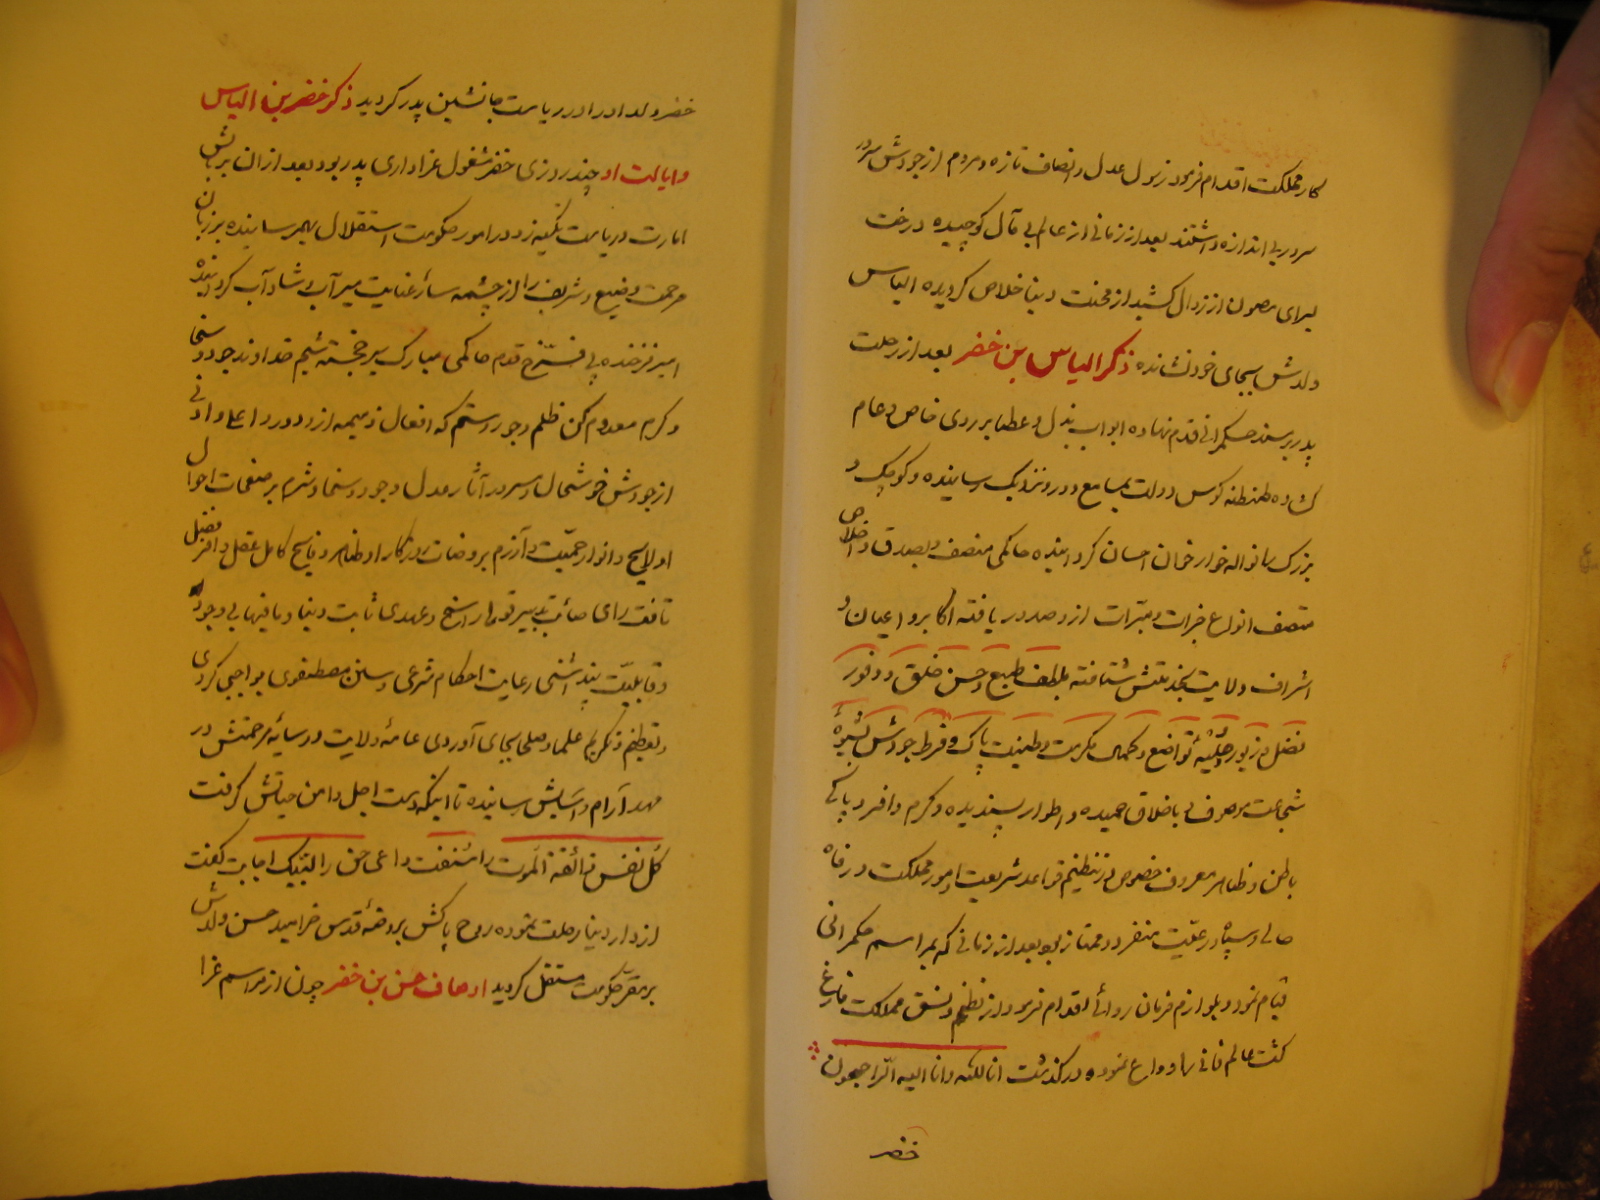 کار مملکت اقدام فرمود زبول عدل و انصاف تازه و مردم از جودش سرور
سرور بی اندازه داشتند بعد از زمانی از عالم بی مآل کوچیده درخت
لسرای مصون از زوال کشید از محنت دنیا خلاص کردیده الیاس
ولدش بجای خود نشانده ذکر الیاس بن خضر بعد از رحلت
پدر بر مسند حکمرانی قدم نهاده ابواب بذل و عطا بر روی خاص و عام
کشاده طنطنه کوس دولت بمسامع دور و نزدیک رسانیده و کوچک و
بزرک را نواله خوار خوان احسان کردانیده حاکمی منصف و بصدق و اخلاص
متصف انواع خیرات و مبرات از و صدور یافته اکابر و اعیان و
اشراف ولایت بخدمتش شتافته بلطف طبع و حسن خلق و وفور
فضل و زیور حلیه تواضع و کمال مکرمت و طینت پاک و فرط جودش بشیوهٔ
شجاعت موصوف بی باخلاق حمیده و اطوار پسندیده و کرم وافر و پاکی
باطن و ظاهر معروف خصوص در تنظیم قواعد شریعت و امور مملکت و رفاه
حال و سپاه و رعیت منفرد و ممتاز بود بعد از زمانی که بمراسم حکمرانی
قیام نمود و بلوازم فرمان روائی اقدام فرمود و از نظم و نسق مملکت فارغ
کشت عالم فانی را وداع نموده درکذشت انا لله و انا الیه راجعون
خضر
خضر ولد او را در ریاست جانشین پدر کردید ذکر خضر بن الیاس
و ایالت او چند روزی خضر مشغول عزاداری پدر بود بعد از ان بر بالش
امارت و ریاست تکیه زد و در امور حکومت استقلال بهمرسانیده بر زبان
مرحمت وضیع و شریف را از چشمه سار عنایت سیرآب و شاد آب کردانید
امیر فرخنده پی فرخ قدم حاکمی مبارک سیر خجسته شیم خداوند جود و سخا
و کرم معدوم کن ظلم و جور و ستم که افعال ذمیمه از و دور و اعلی و ادنی
از جودش خوشحال و مسرور آثار عدل و جود و سخا و شرم بر صفحات احوال
او لایح و انوار حمیت و آزرم بر وضات روزکار او ظاهر و فایح کامل عقل وافر فضل
ثاقب رای صائب تدبیر قولی راسخ و عهدی ثابت دنیا و مافیها بی وجود
و قابلیت پنداشتی رعایت احکام شرعی و سنن مصطفوی بواجبی کردی
و تعظیم و تکریم علما و صلحا بجای آوردی عامهٔ ولایت در سایهٔ مرحمتش در
مهد آرام و آسایش رسانیده تا اینکه دست اجل دامن حیاتش کرفت
کل نفس ذائقة الموت را شنفت داعی حق را لبیک اجابت کفت
از دار دنیا رحلت نموده روح پاکش بروضهٔ قدس خرامید حسن ولدش
بر مقر حکومت مستقل کردید اوصاف حسن بن خضر چون از مراسم عزا